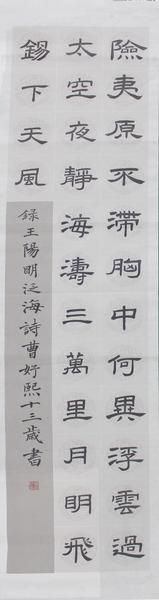 險夷原不滯胸中何異浮雲過
太空夜靜海濤三萬里月明飛
錫下天風
錄王陽明泛海詩曹妤熙十三歲書